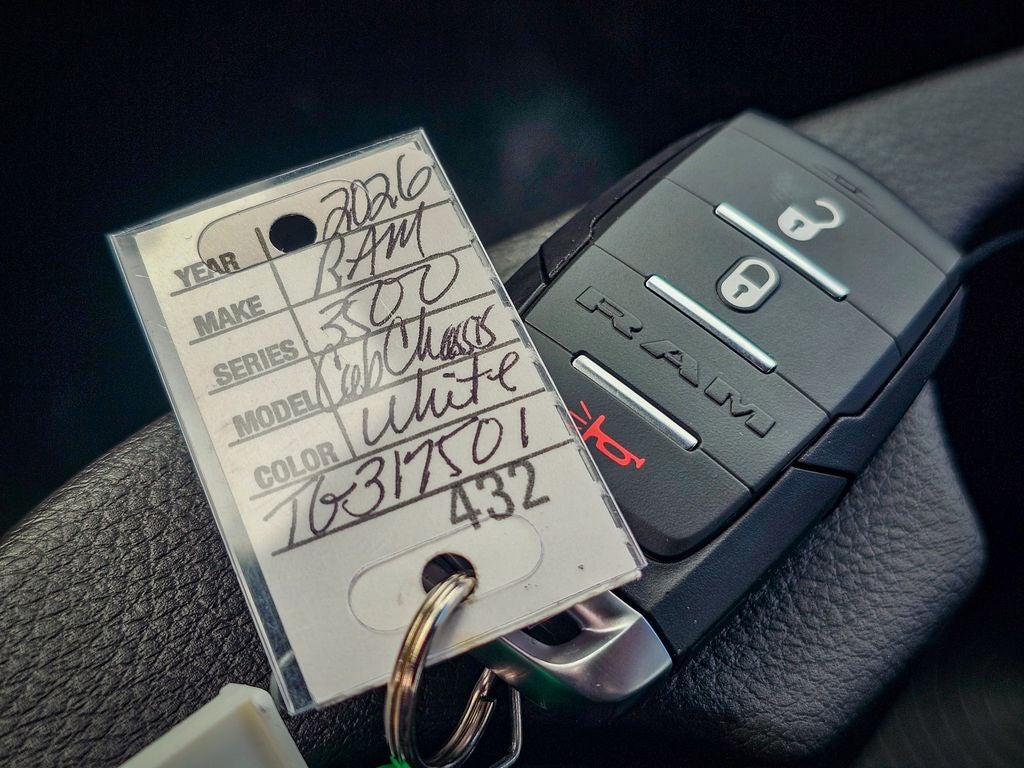 YEAR 2026
MAKE RAM
SERIES 3500
MODEL Cab Chassis
COLOR White
TG317501
432
RAM